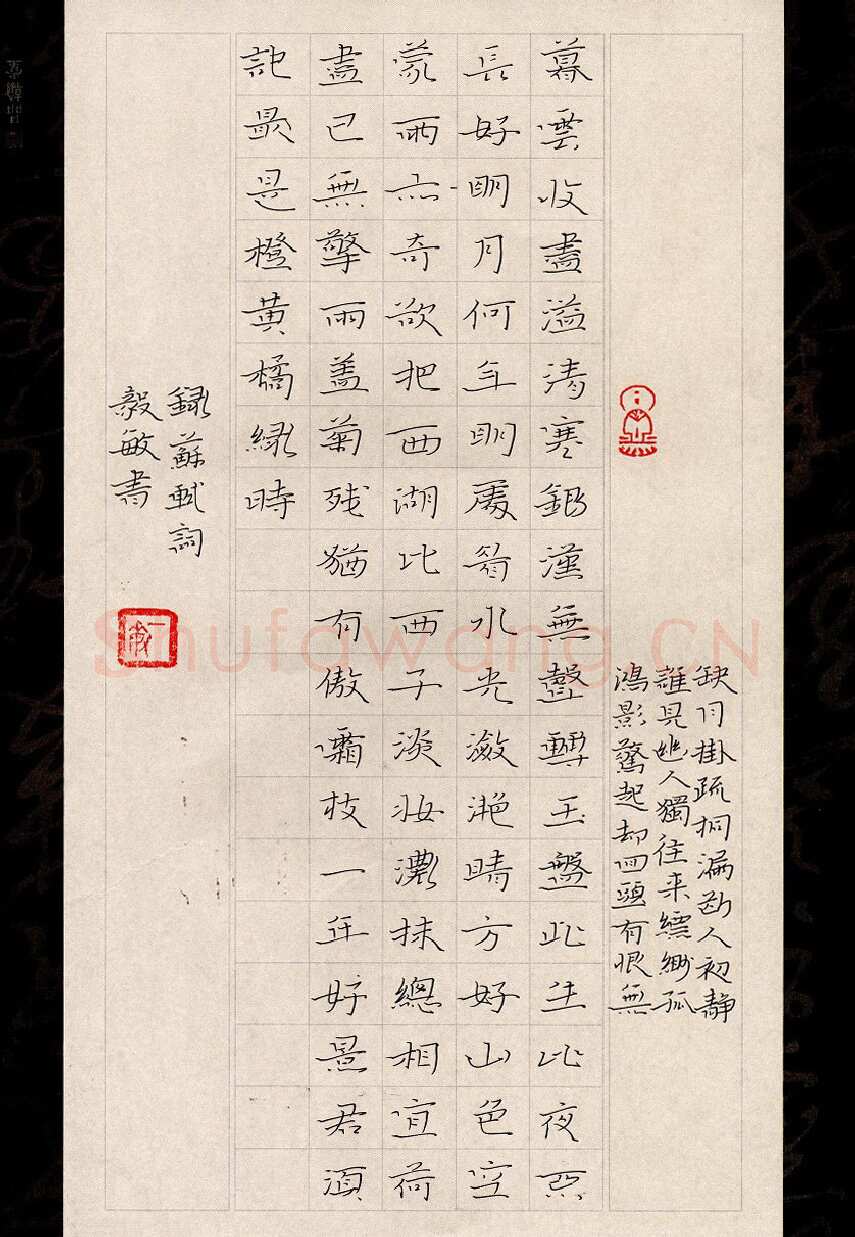 缺月掛疏桐漏断人初靜
誰見幽人獨往来縹緲孤
鴻影驚起却回頭有恨無
暮雲收盡溢清寒銀漢無聲轉玉盤此生此夜不
長好明月何年明處看水光瀲灔晴方好山色空
蒙雨亦奇欲把西湖比西子淡妝濃抹總相宜荷
盡已無擎雨盖菊残猶有傲霜枝一年好景君須
記最是橙黄橘緑時
録蘇軾詞
毅敏書
Shufawang.CN